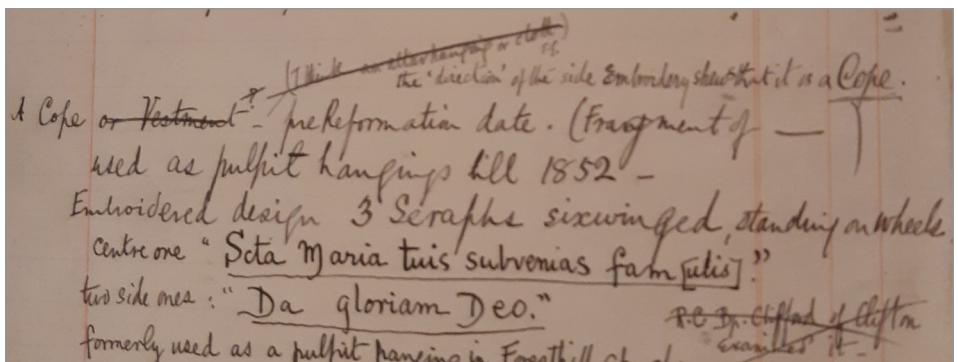 (I think an altar hanging or cloth FG.)
the 'direction' of the side Embroidery shews that it is a Cope.
A Cope or Vestment ? - preReformation date. (Fragment of — )
used as pulpit hangings till 1852 -
Embroidered design 3 Seraphs sixwinged, standing on wheels
centre one "Scta Maria tuis subvenias fam[ulis]."
two side ones: "Da gloriam Deo."
R.C Bp. Clifford of Clifton
examined it -
formerly used as a pulpit hanging in Forsthill